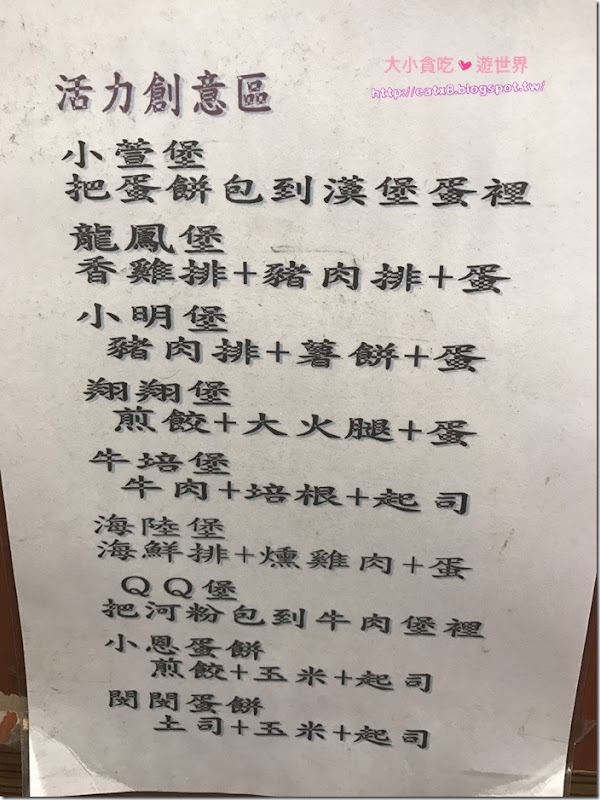 大小貪吃❤遊世界
http://eatx8.blogspot.tw/
活力創意區
小萱堡
把蛋餅包到漢堡蛋裡
龍鳳堡
香雞排+豬肉排+蛋
小明堡
豬肉排+薯餅+蛋
翔翔堡
煎餃+大火腿+蛋
牛培堡
牛肉+培根+起司
海陸堡
海鮮排+燻雞肉+蛋
QQ堡
把河粉包到牛肉堡裡
小恩蛋餅
煎餃+玉米+起司
閔閔蛋餅
土司+玉米+起司